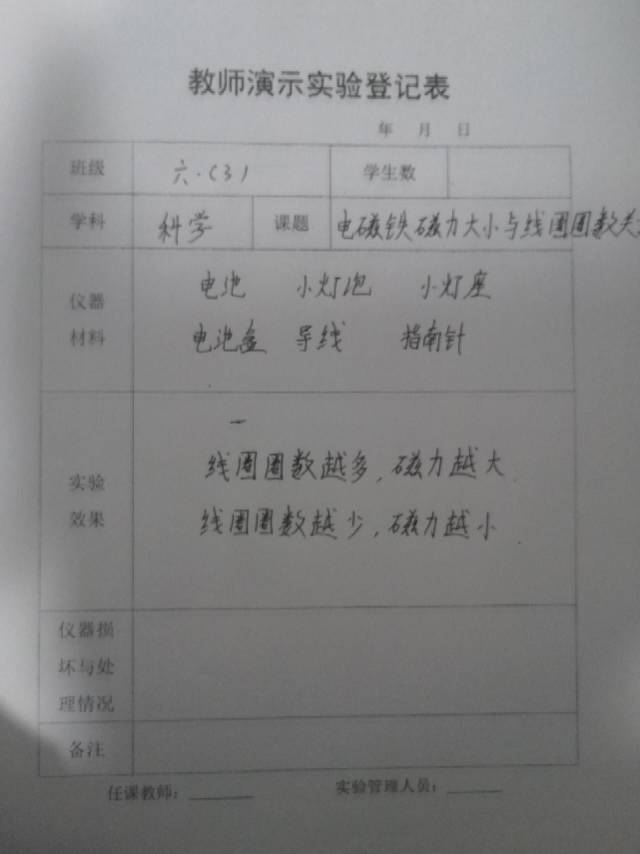 教师演示实验登记表
年 月 日
班级 六.(3) 学生数
学科 科学 课题 电磁铁磁力大小与线圈圈数关
仪器材料 电池 小灯泡 小灯座
电池盒 导线 指南针
实验效果 线圈圈数越多,磁力越大
线圈圈数越少,磁力越小.
仪器损
坏与处
理情况
备注
任课教师: 实验管理人员: